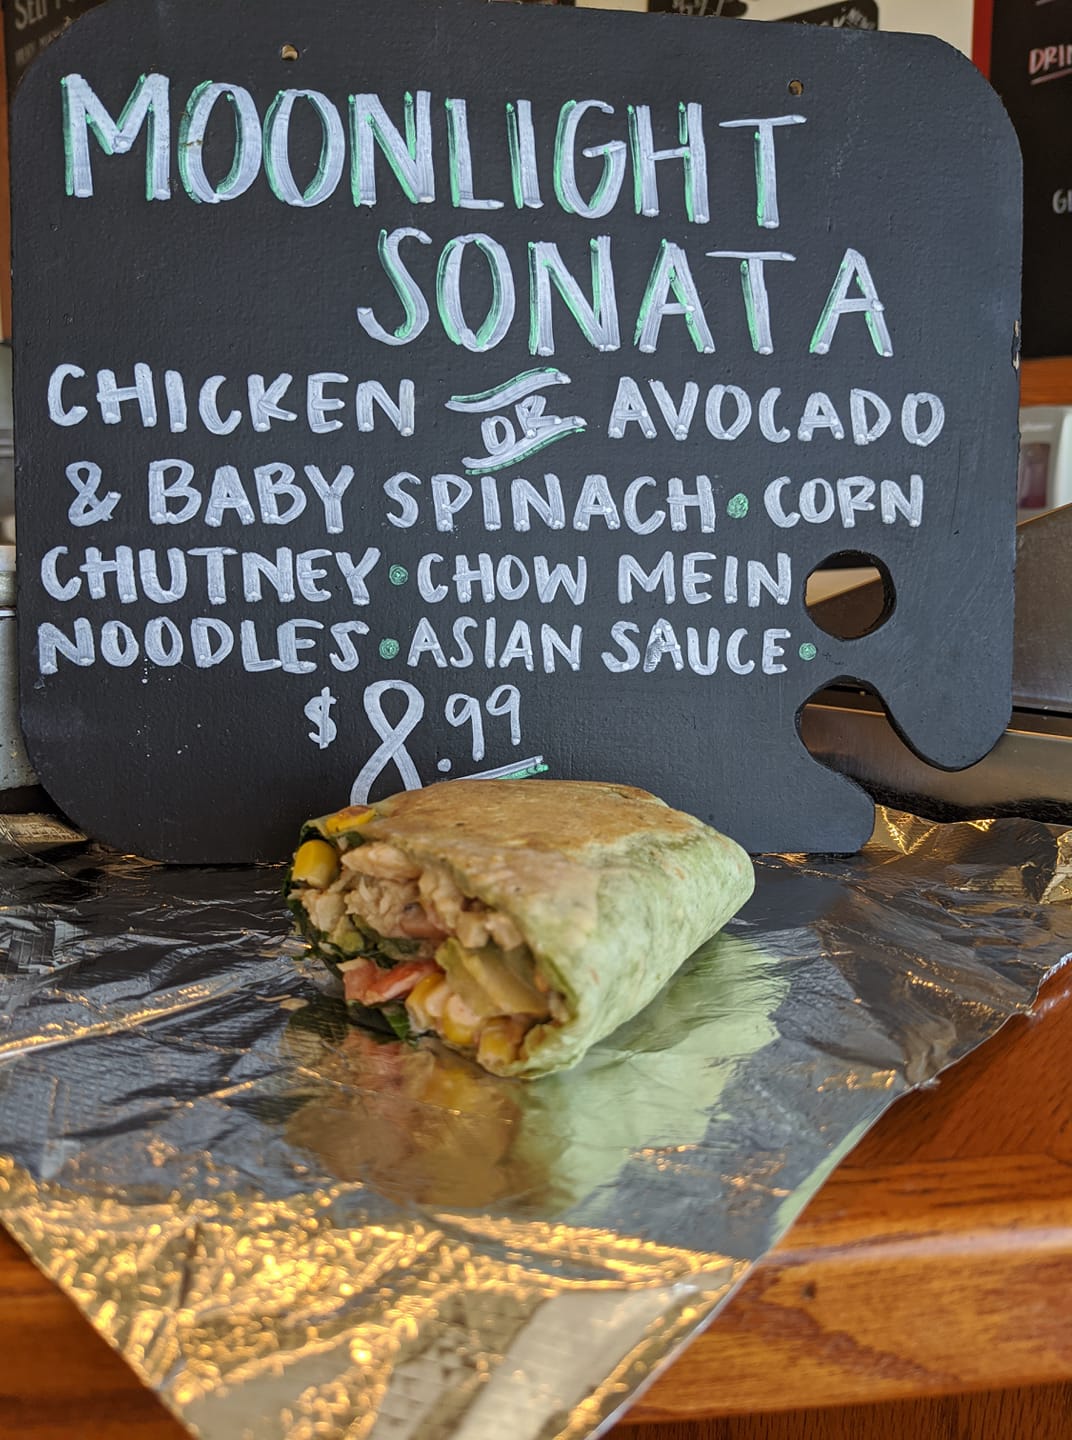 MOONLIGHT
SONATA
CHICKEN OR AVOCADO
& BABY SPINACH • CORN
CHUTNEY • CHOW MEIN
NOODLES • ASIAN SAUCE •
$8.99